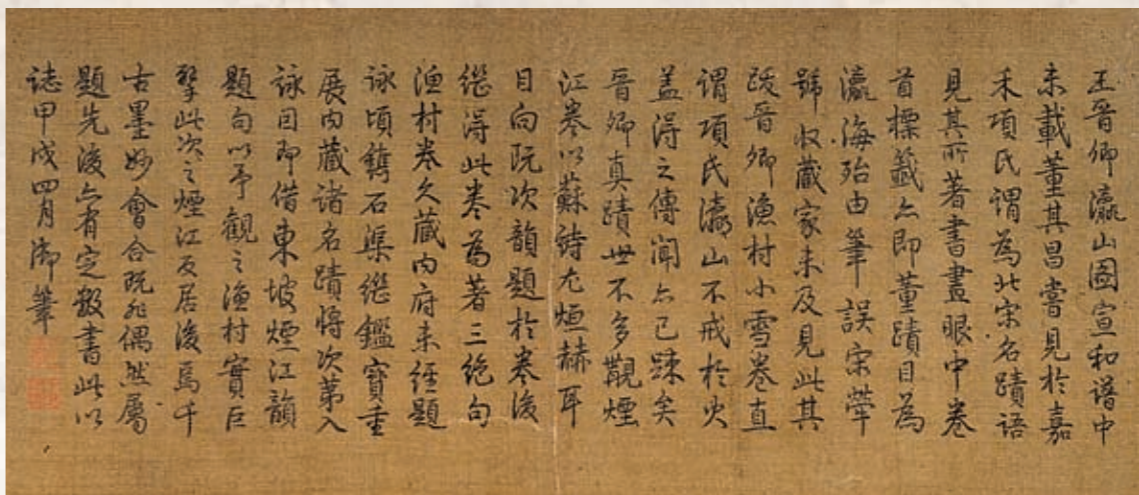 王晉卿瀛山圖宣和譜中
未載董其昌嘗見於嘉
禾項氏謂為北宋名蹟語
見其所著書畫眼中卷
首標籤亦即董蹟目為
瀛海殆由筆誤宋犖
號收藏家未及見此其
跋晉卿漁村小雪卷直
謂項氏瀛山不戒於火
盖得之傳聞亦已踈矣
晉卿真蹟世不多覯煙
江卷以蘇詩尤烜赫耳
目向既次韻題於卷後
継得此卷為著三絶句
漁村卷久藏内府未經題
詠頃鐫石渠継鑑寶重
展内藏諸名蹟將次第入
詠因即借東坡煙江韻
題句以予觀之漁村實巨
擘此次之煙江反居後焉千
古墨妙會合既非偶然屬
題先後亦有定數書此以
誌甲戌四月御筆